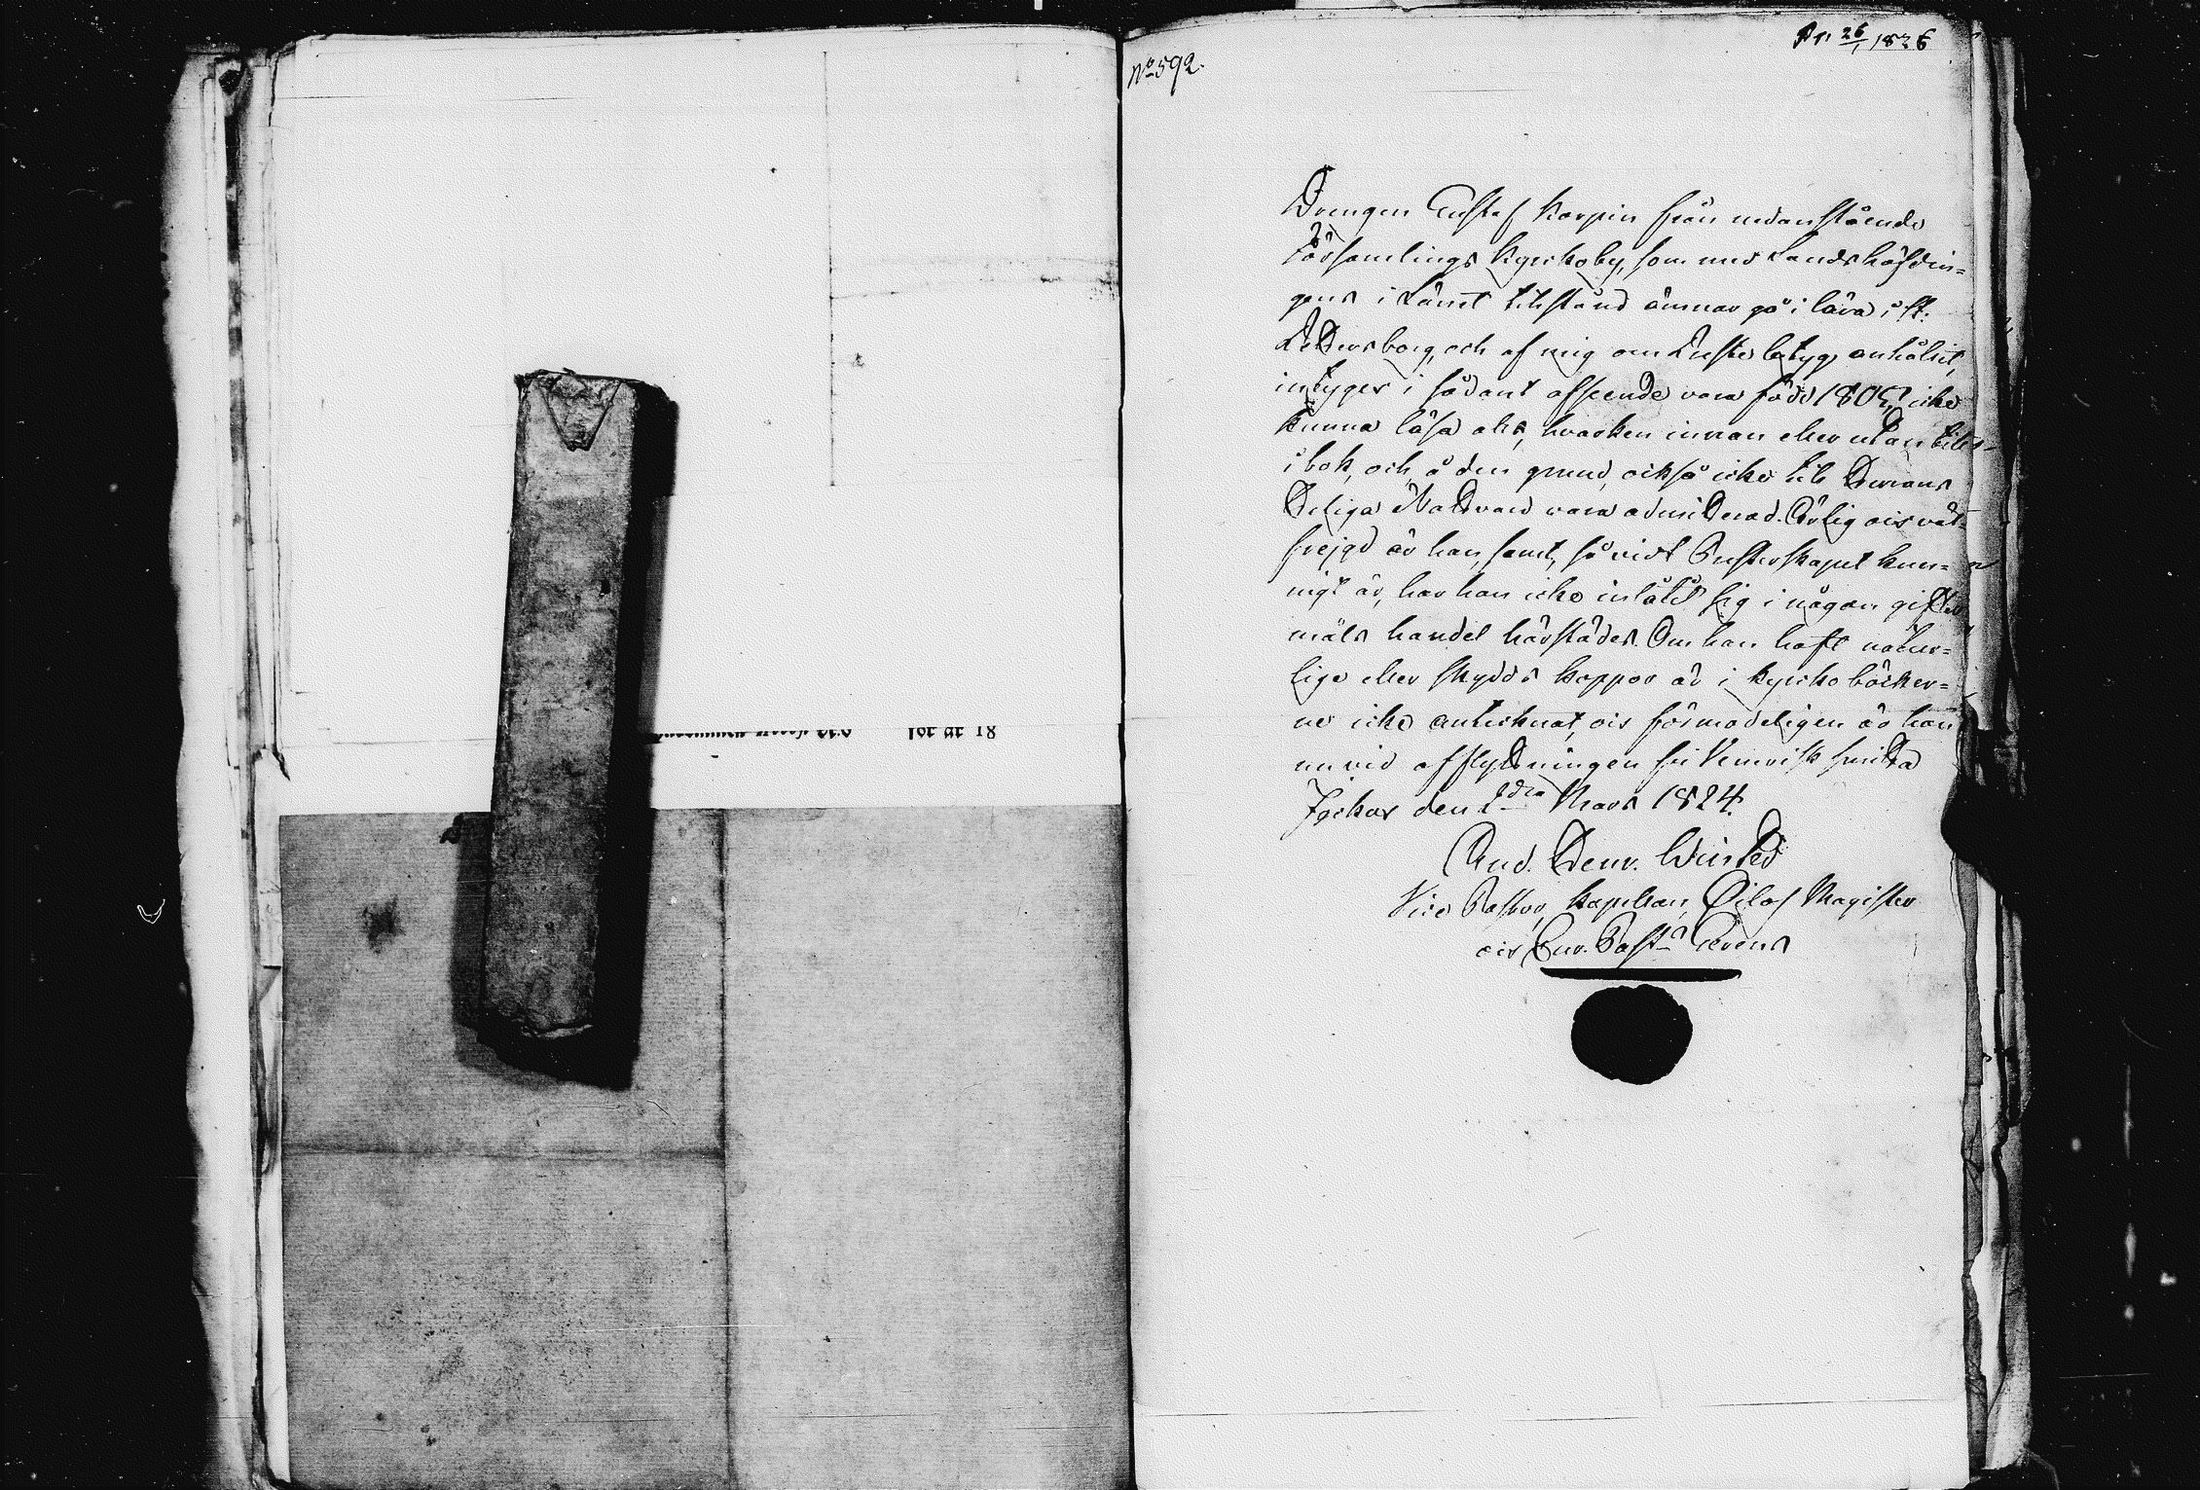 No 592.
Pr. 26/1 1826
Drengen Gustaf Karpin från nedanstående
Församlings Kyrkoby, som med Landshöfdin=
gens i Länet tilstånd ämnar gå i lära i St.
Petersborg, och af mig om Preste betyg anhållit,
intyges i sådant afseende vara född 1805, icke
kunna läsa alls, hvarken innan eller utan till
i bok, och, å den grund, också icke till Herrans
Heliga Nattvard vara admitterad. Ärlig och väl=
frejgd är han, samt, så vidt Presterskapet kun=
nigt är, har han icke inlåtit sig i någon gifter
måls handel härstädes. Om han haft natur=
lige eller skydds koppor är i kyrko böcker=
ne icke anteknat, och förmodeligen är han
nu vid afflyttningen fri Venerisk smitta
Jockas den 2dra Mars 1824.
And. Henr.
Vice Pastor, Kapellan, Philos. Magister
och Cur. Past.s Gerens
18